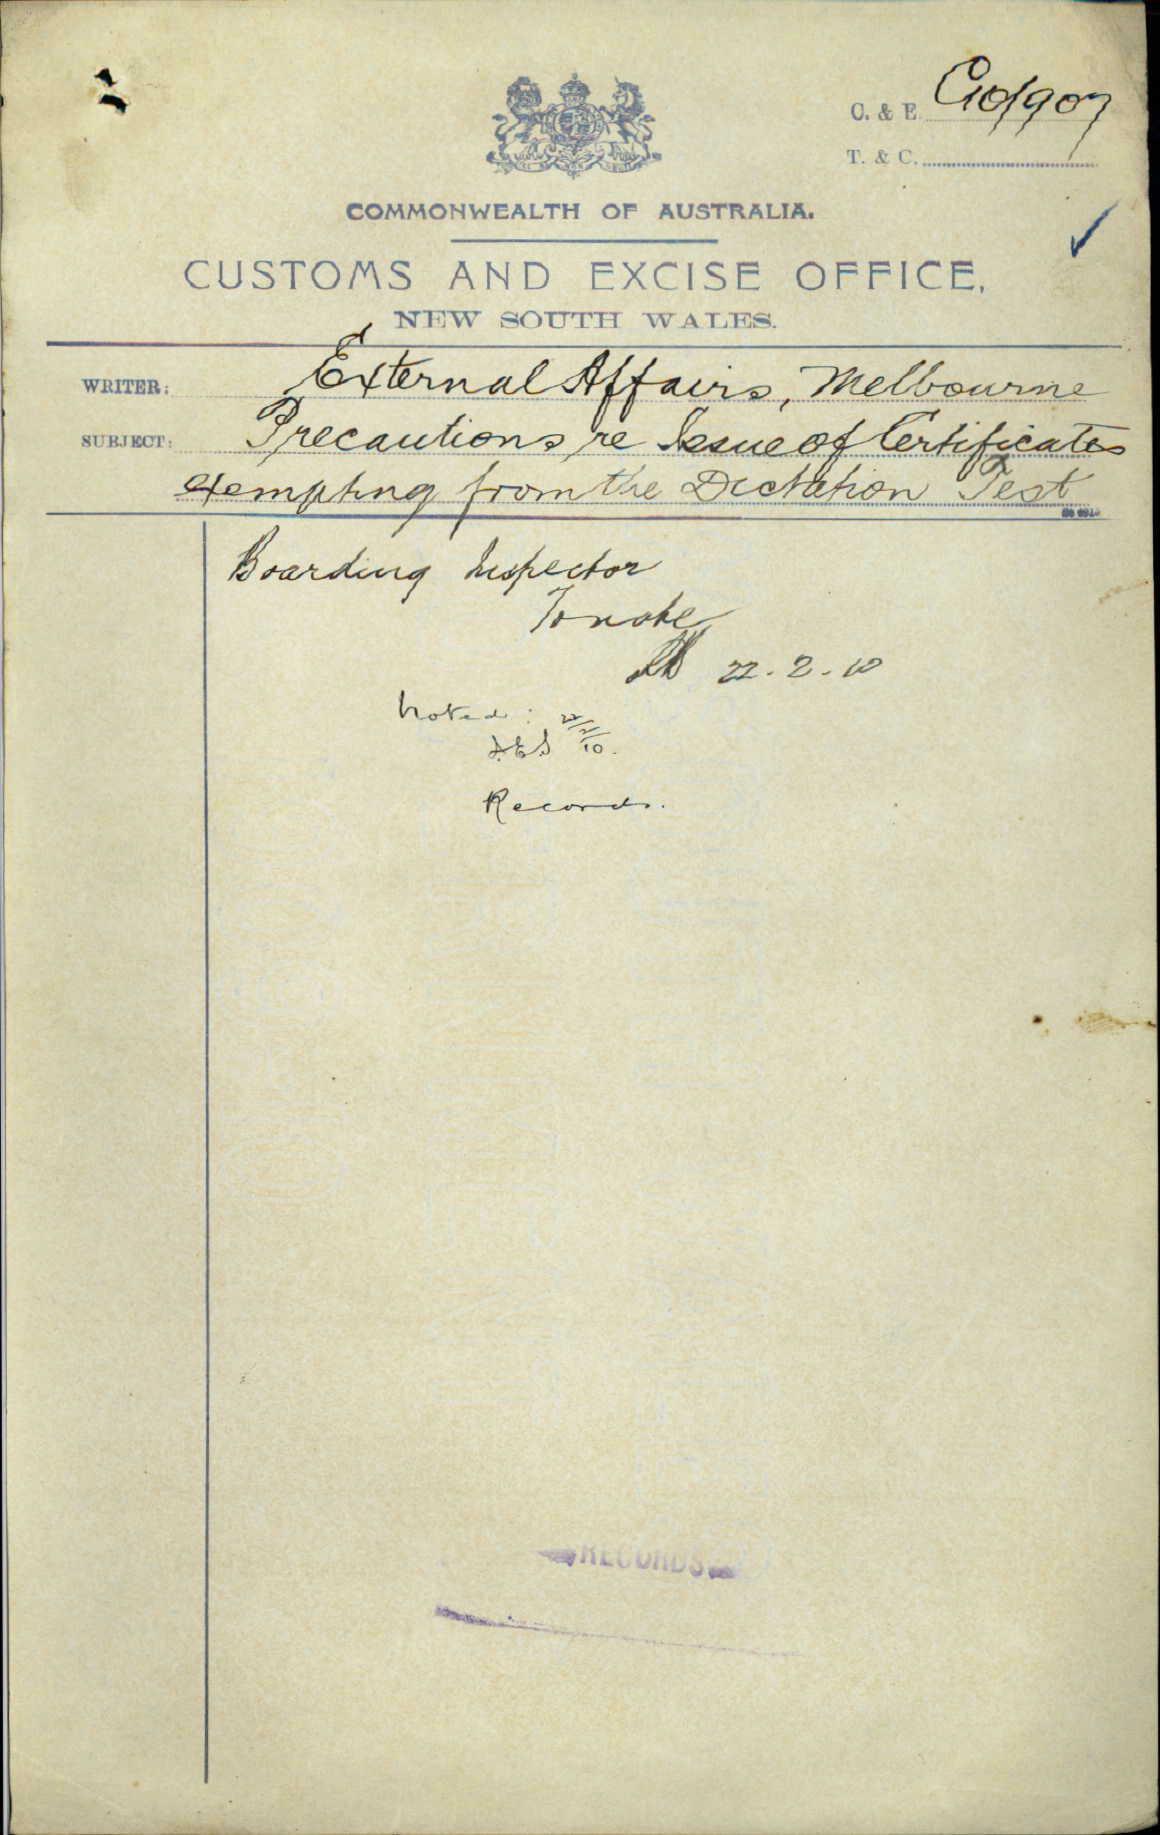 C. & E. C10/907
T. & C.
COMMONWEALTH OF AUSTRALIA.
CUSTOMS AND EXCISE OFFICE,
NEW SOUTH WALES.
WRITER: External Affairs, Melbourne
SUBJECT: Precautions re Issue of Certificates
exempting from the Dictation Test
Boarding Inspector
To note
22-2-10
Noted: 22/2/10.
Records.
RECORDS